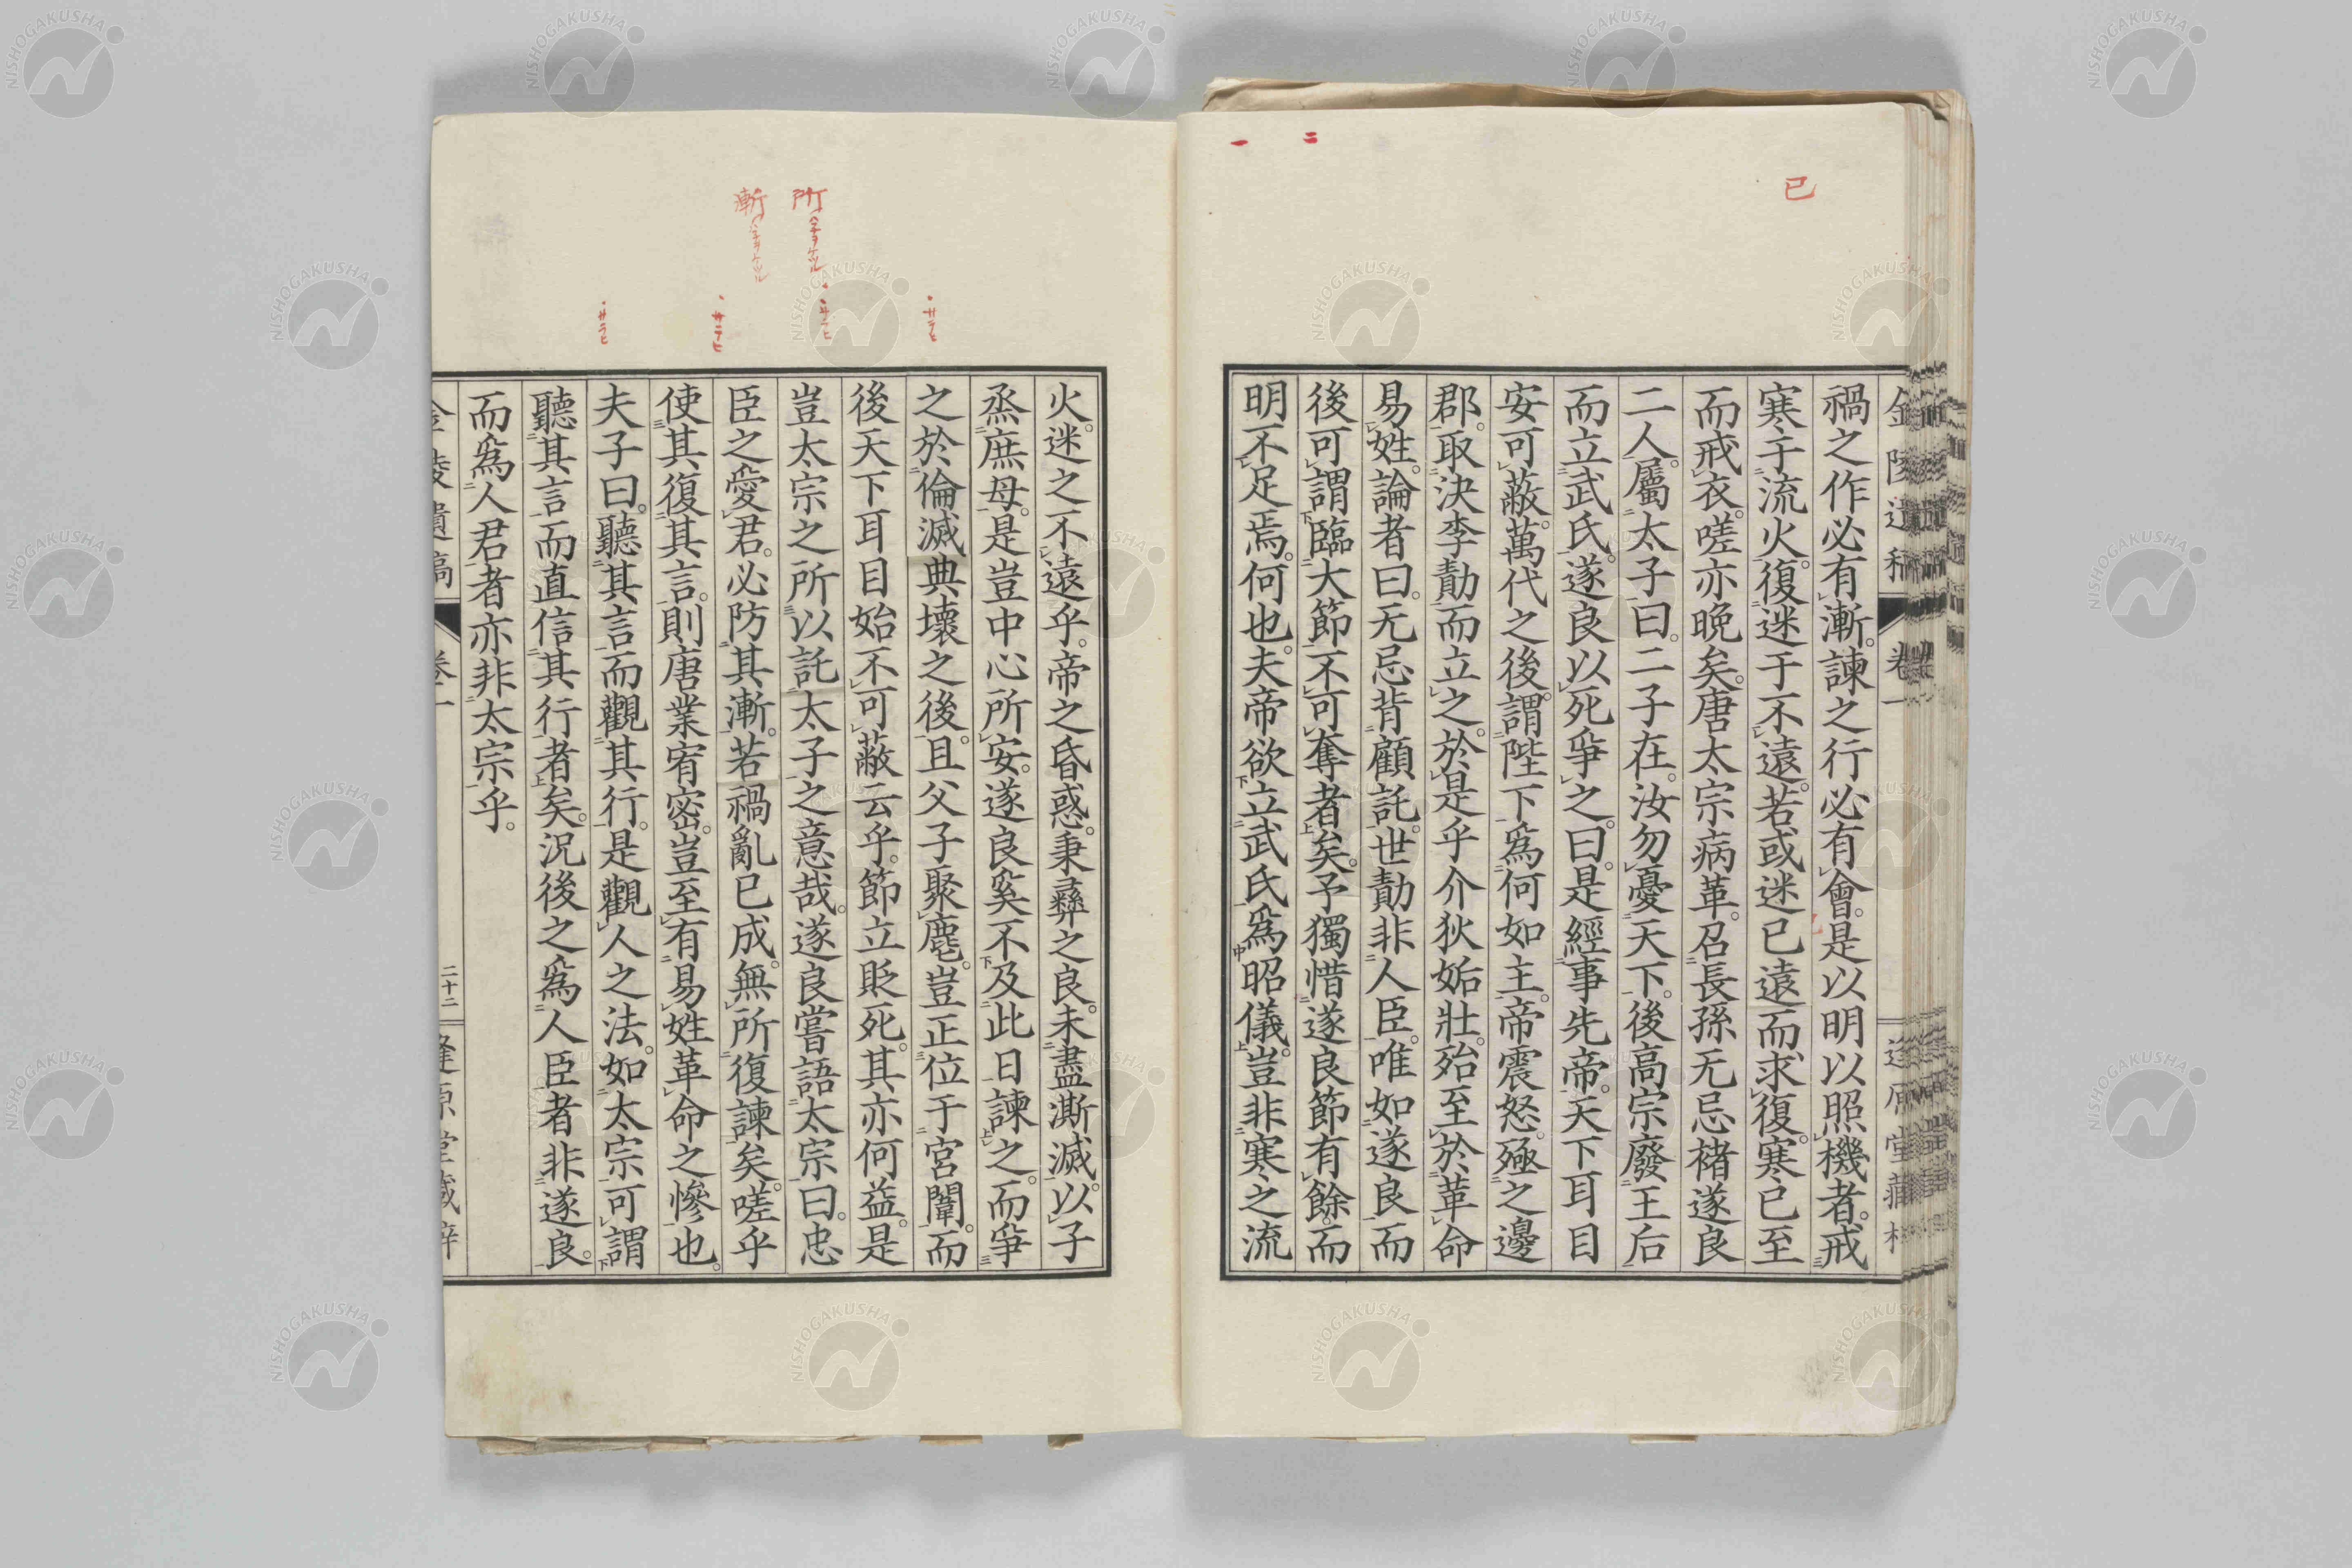 已
二
一
金陵遺稿
卷一
禍之作必有漸。諫之行必有會。是以明以照機者。戒
寒于流火。復迷于不遠。若或迷已遠而求復。寒已至
而戒衣。嗟亦晚矣。唐太宗病革。召長孫无忌褚遂良
二人。屬太子曰。二子在。汝勿憂天下。後高宗廢王后
而立武氏。遂良以死爭之。曰。是經事先帝。天下耳目
安可蔽。萬代之後。謂陛下爲何如主。帝震怒。殛之邊
郡。取決李勣而立之。於是乎介狄姤壯。殆至於革命
易姓。論者曰。无忌背顧託。世勣非人臣。唯如遂良而
後可謂臨大節不可奪者矣。予獨惜遂良節有餘。而
明不足焉。何也。夫帝欲立武氏爲昭儀。豈非寒之流
所
漸
火。迷之不遠乎。帝之昏惑。秉彝之良。未盡澌滅。以子
烝庶母。是豈中心所安。遂良奚不及此日諫之。而爭
之於倫滅典壞之後。且父子聚麀。豈正位于宮闈。而
後天下耳目始不可蔽云乎。節立貶死。其亦何益。是
豈太宗之所以託太子之意哉。遂良嘗語太宗曰。忠
臣之愛君。必防其漸。若禍亂已成。無所復諫矣。嗟乎
使其復其言。則唐業宥密。豈至有易姓革命之慘也。
夫子曰。聽其言而觀其行。是觀人之法。如太宗可謂
聽其言而直信其行者矣。況後之爲人臣者非遂良。
而爲人君者亦非太宗乎。
二十二
NISHOGAKUSHA